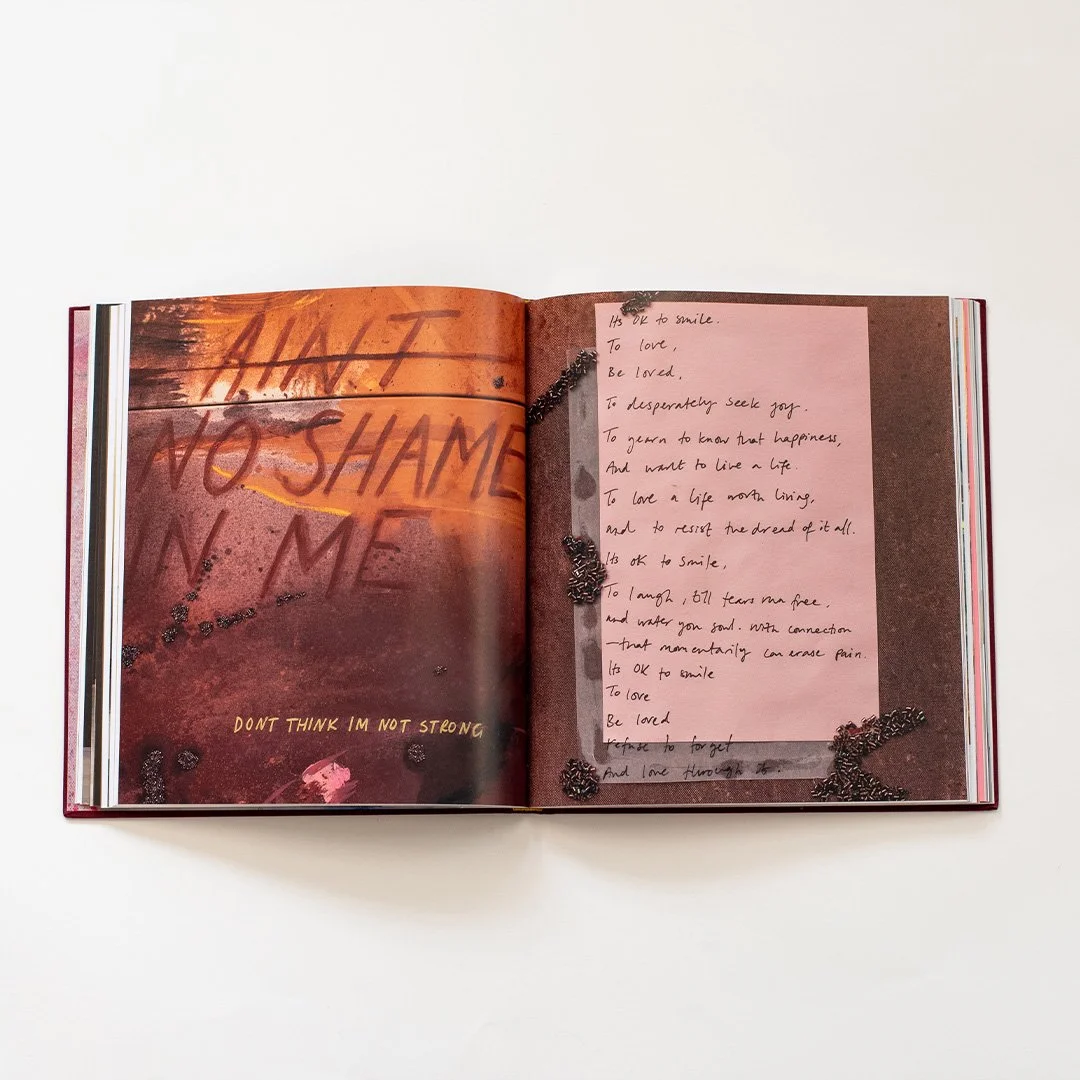 AINT
NO SHAME
IN ME
DONT THINK IM NOT STRONG
Its OK to smile.
To love,
Be loved,
To desperately seek joy.
To yearn to know that happiness,
And want to live a life.
To love a life worth living,
and to resist the dread of it all.
Its ok to smile,
To laugh, till tears run free,
and water you soul. with connection
—that momentarily can erase pain.
Its OK to smile
To love
Be loved
refuse to forget
And love through it.